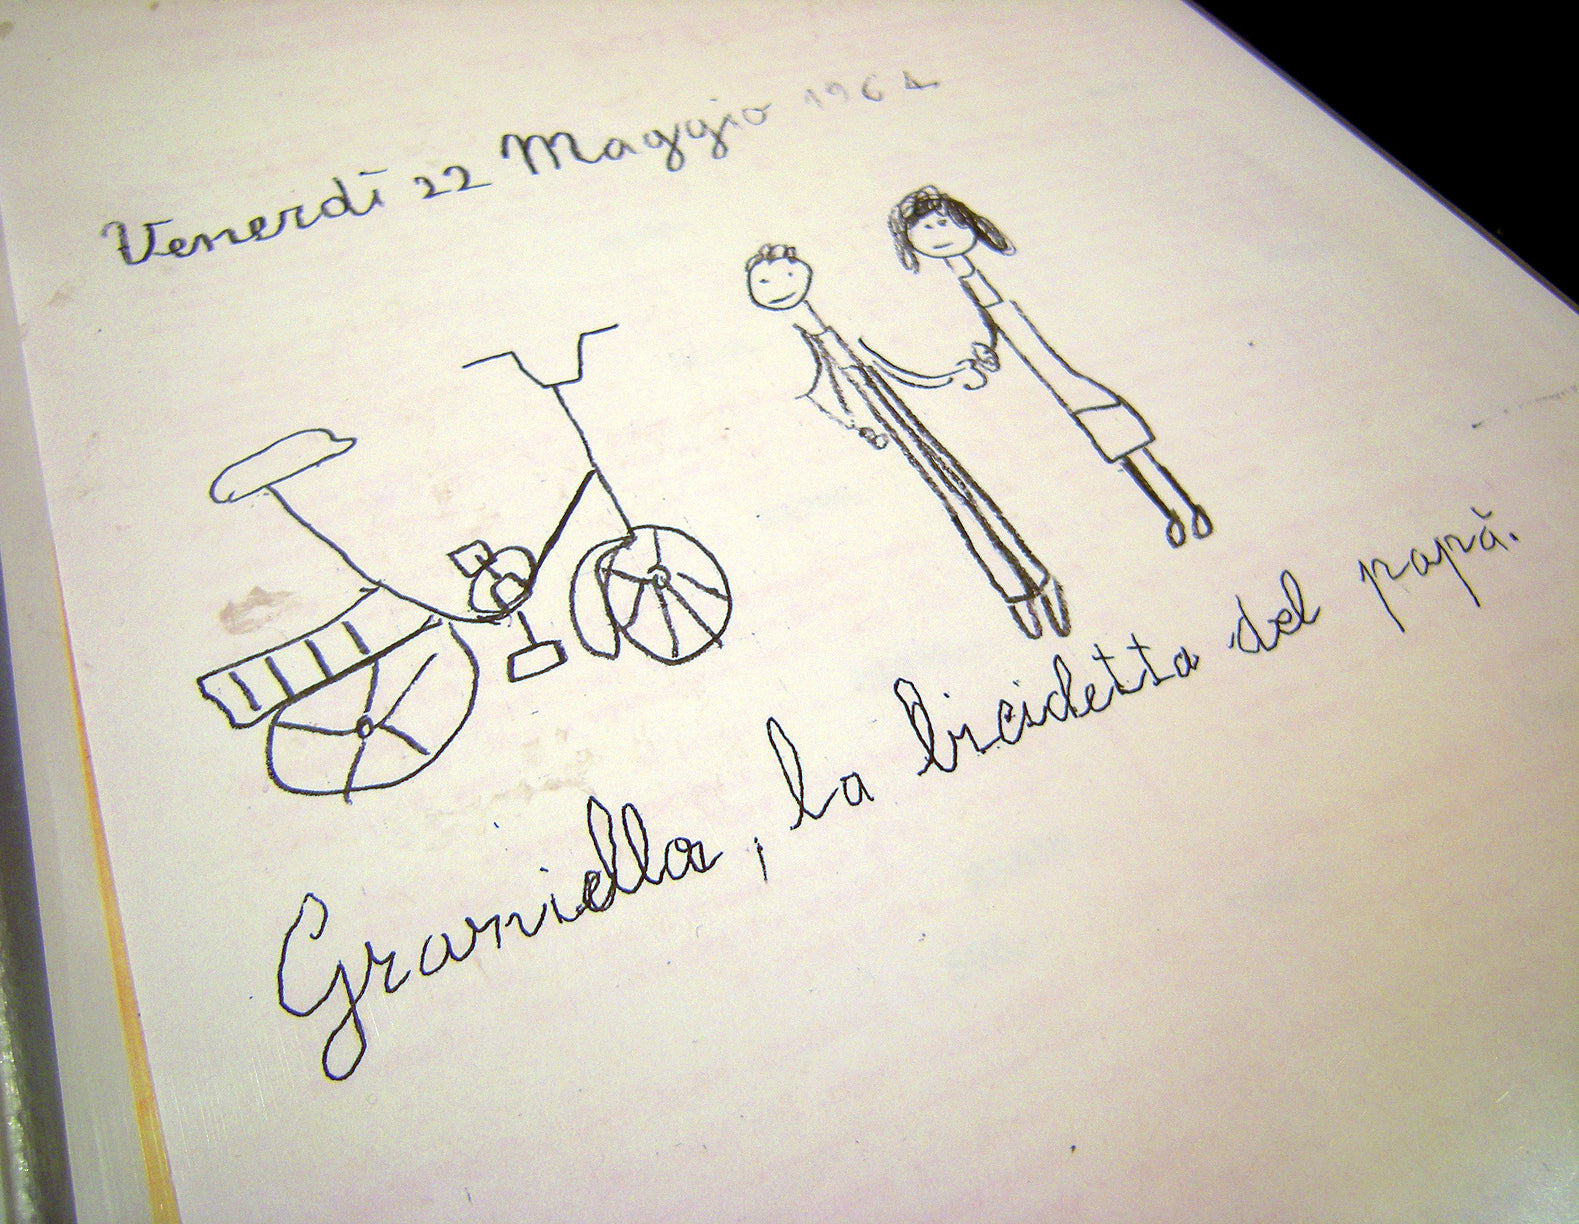 Venerdì 22 Maggio 1964
Graziella, la bicicletta del papà.